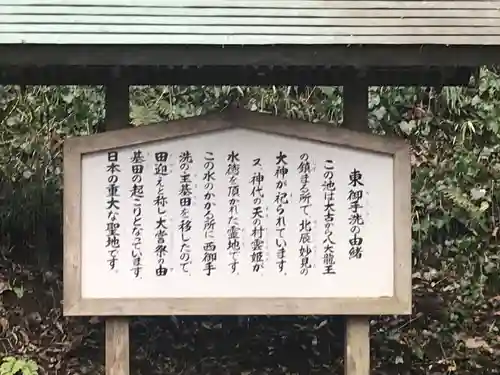 東御手洗の由緒
この池は大古から八大龍王
の鎮まる所で、北辰妙見の
大神が祀られています。
又、神代の天の村雲姫が
水徳を頂かれた霊地です。
この水のかかる所に西御手
洗の主基田を移したので、
田迎えと称し大嘗祭の由
基田の起こりとなっています。
日本の重大な聖地です。